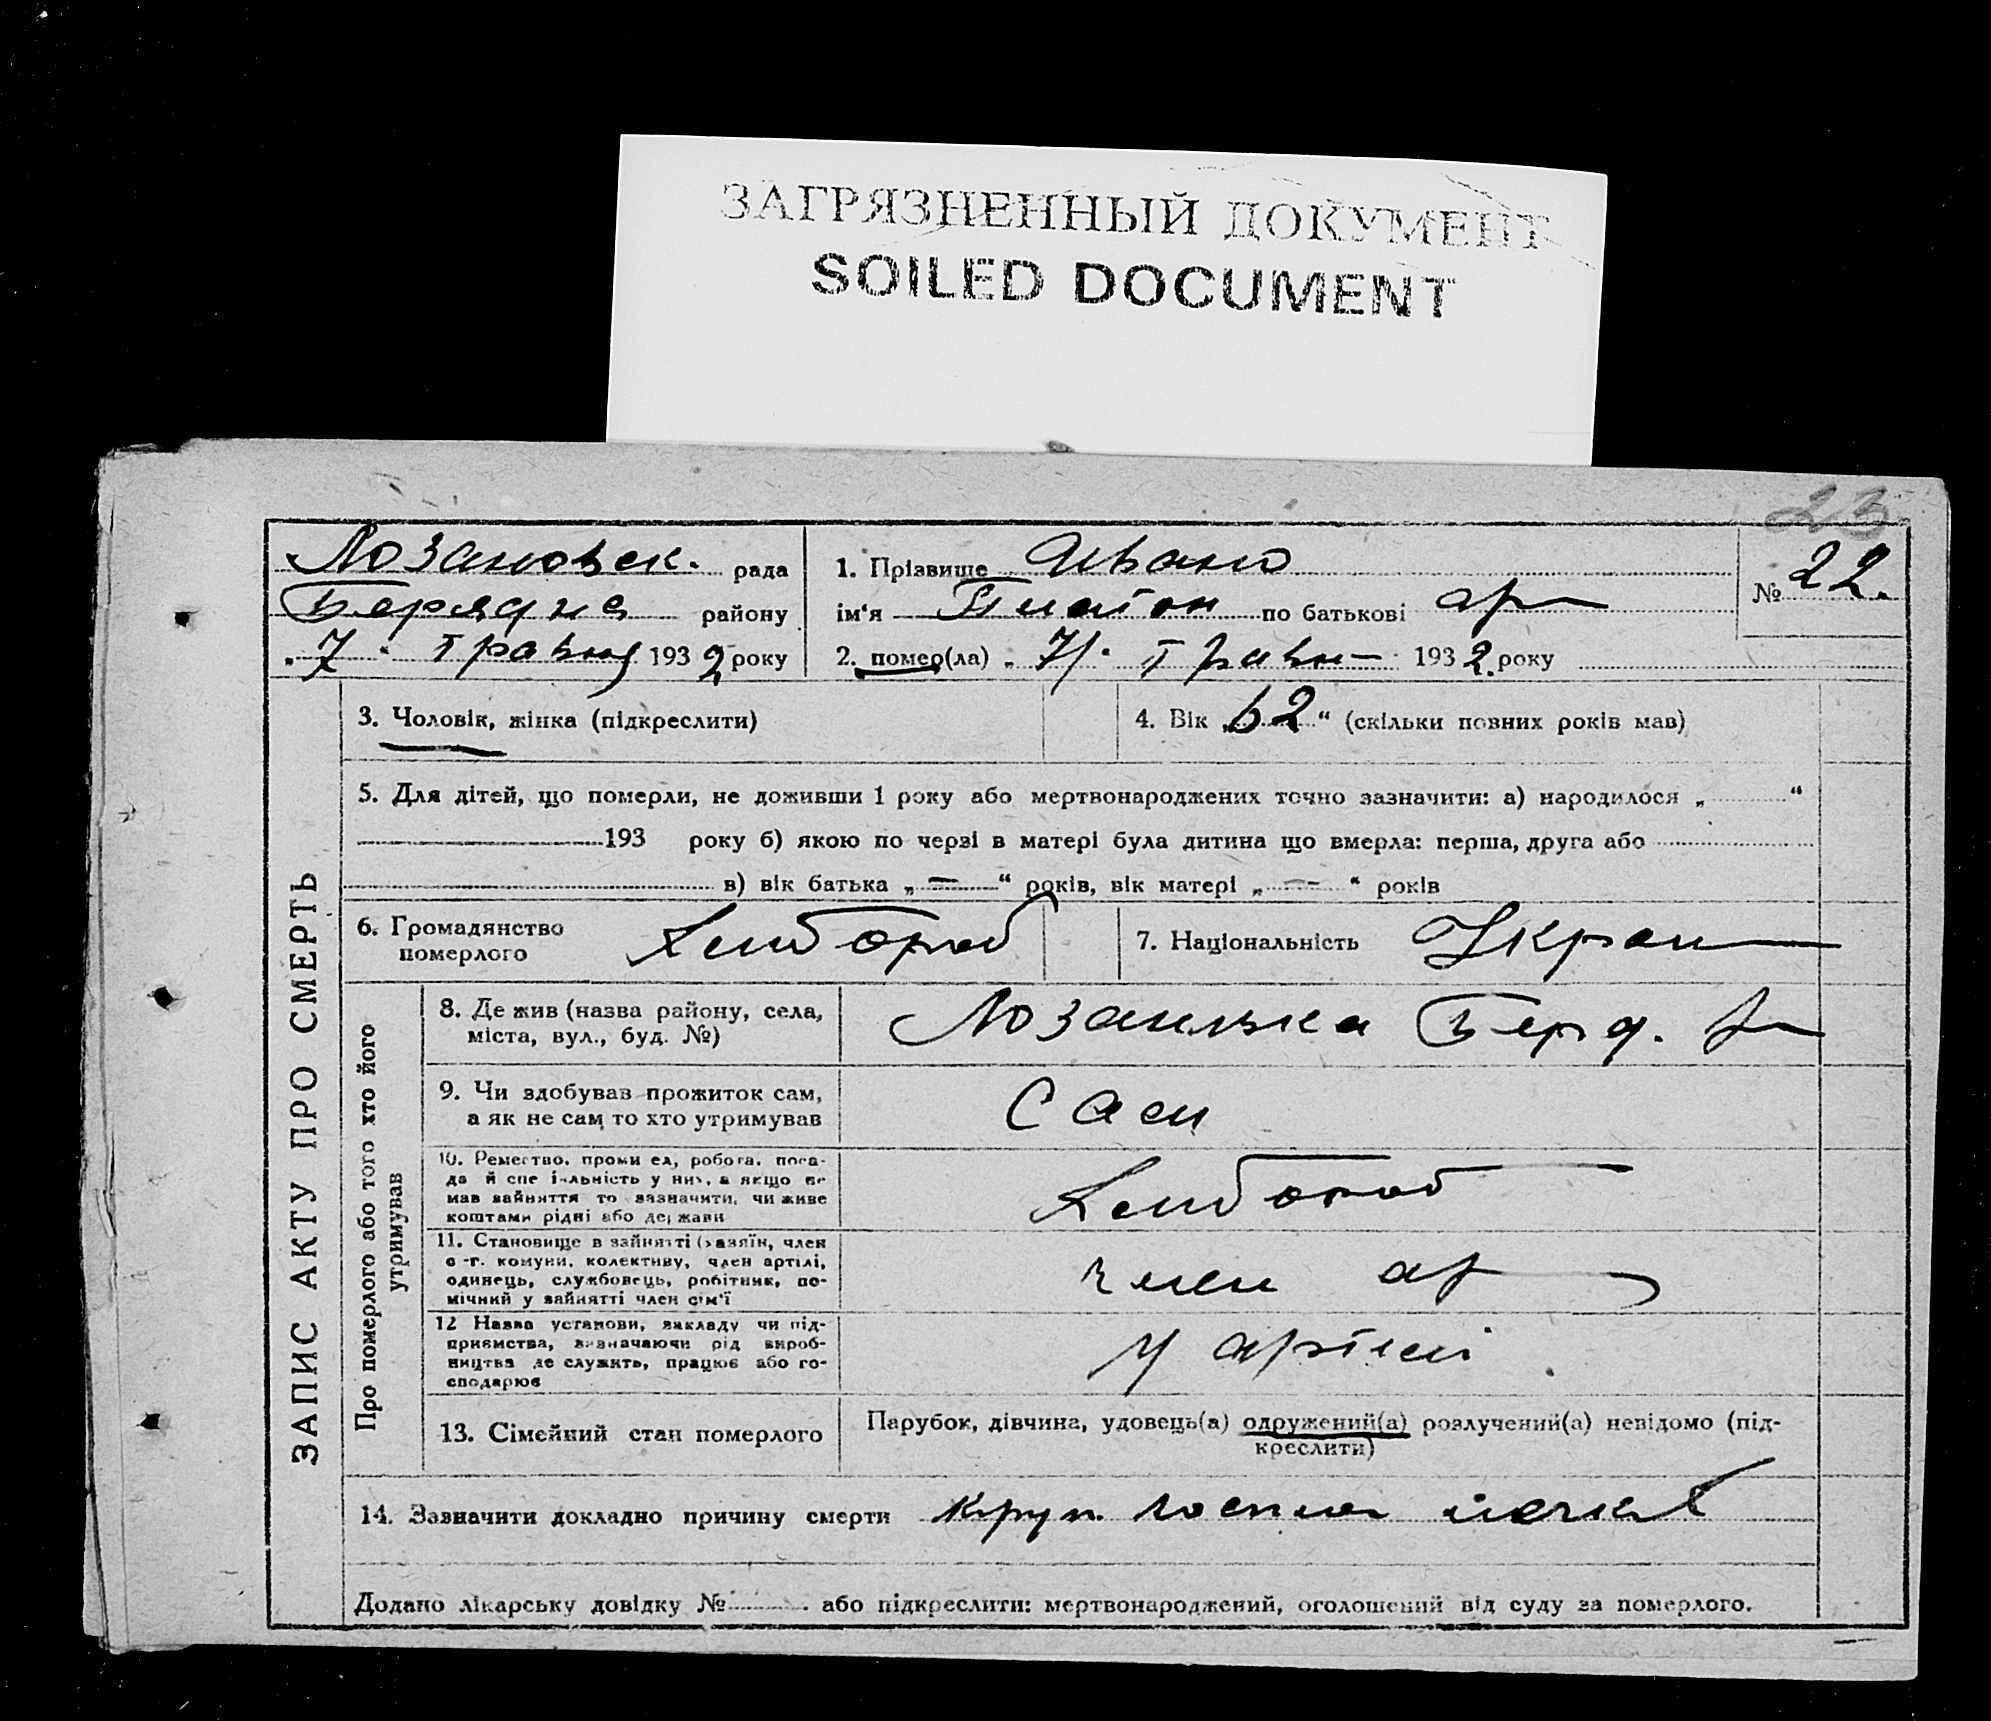 ЗАГРЯЗНЕННЫЙ ДОКУМЕНТ
SOILED DOCUMENT
23
Лозановск. рада
району
„7“ травня 1932 року
1. Прізвище Ивано
ім‘я Платон по батькові
2. помер(ла) „7“ травн 1932. року
№ 22.
ЗАПИС АКТУ ПРО СМЕРТЬ
3. Чоловік, жінка (підкреслити)
4. Вік „62“ (скільки повних років мав)
5. Для дітей, що померли, не доживши 1 року або мертвонароджених точно зазначити: а) народилося „ “
193 року б) якою по черзі в матері була дитина що вмерла: перша, друга або
в) вік батька „—“ років, вік матері „—“ років
6. Громадянство померлого Хлібороб
7. Національність Украи
Про померлого або того хто його утримував
8. Де жив (назва району, села,
міста, вул., буд. №)
Берд. р
9. Чи здобував прожиток сам,
а як не сам то хто утримував
Сам
10. Ремество, промисел, робота, поса-
да й спеціяльність у них, а якщо не
мав зайняття то зазначити, чи живе
коштами рідні або держави
Хлібороб
11. Становище в зайнятті (хазяїн, член
с.-г. комуни, колективу, член артілі,
одинець, службовець, робітник, по-
мічний у зайнятті член сім‘ї
член ар
12 Назва установи, закладу чи під-
приємства, визначаючи рід вироб-
ництва де служить, працює або го-
сподарює
У артілі
13. Сімейний стан померлого
Парубок, дівчина, удовець(а) одружений(а) розлучений(а) невідомо (під-
креслити)
14. Зазначити докладно причину смерти Круп.
Додано лікарську довідку № . або підкреслити: мертвонароджений, оголошений від суду за померлого.